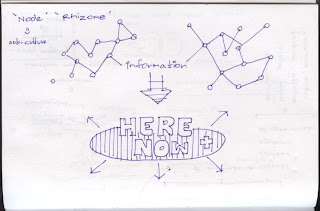 'Node' 'Rhizome'
&
sub-culture
information
HERE
NOW +